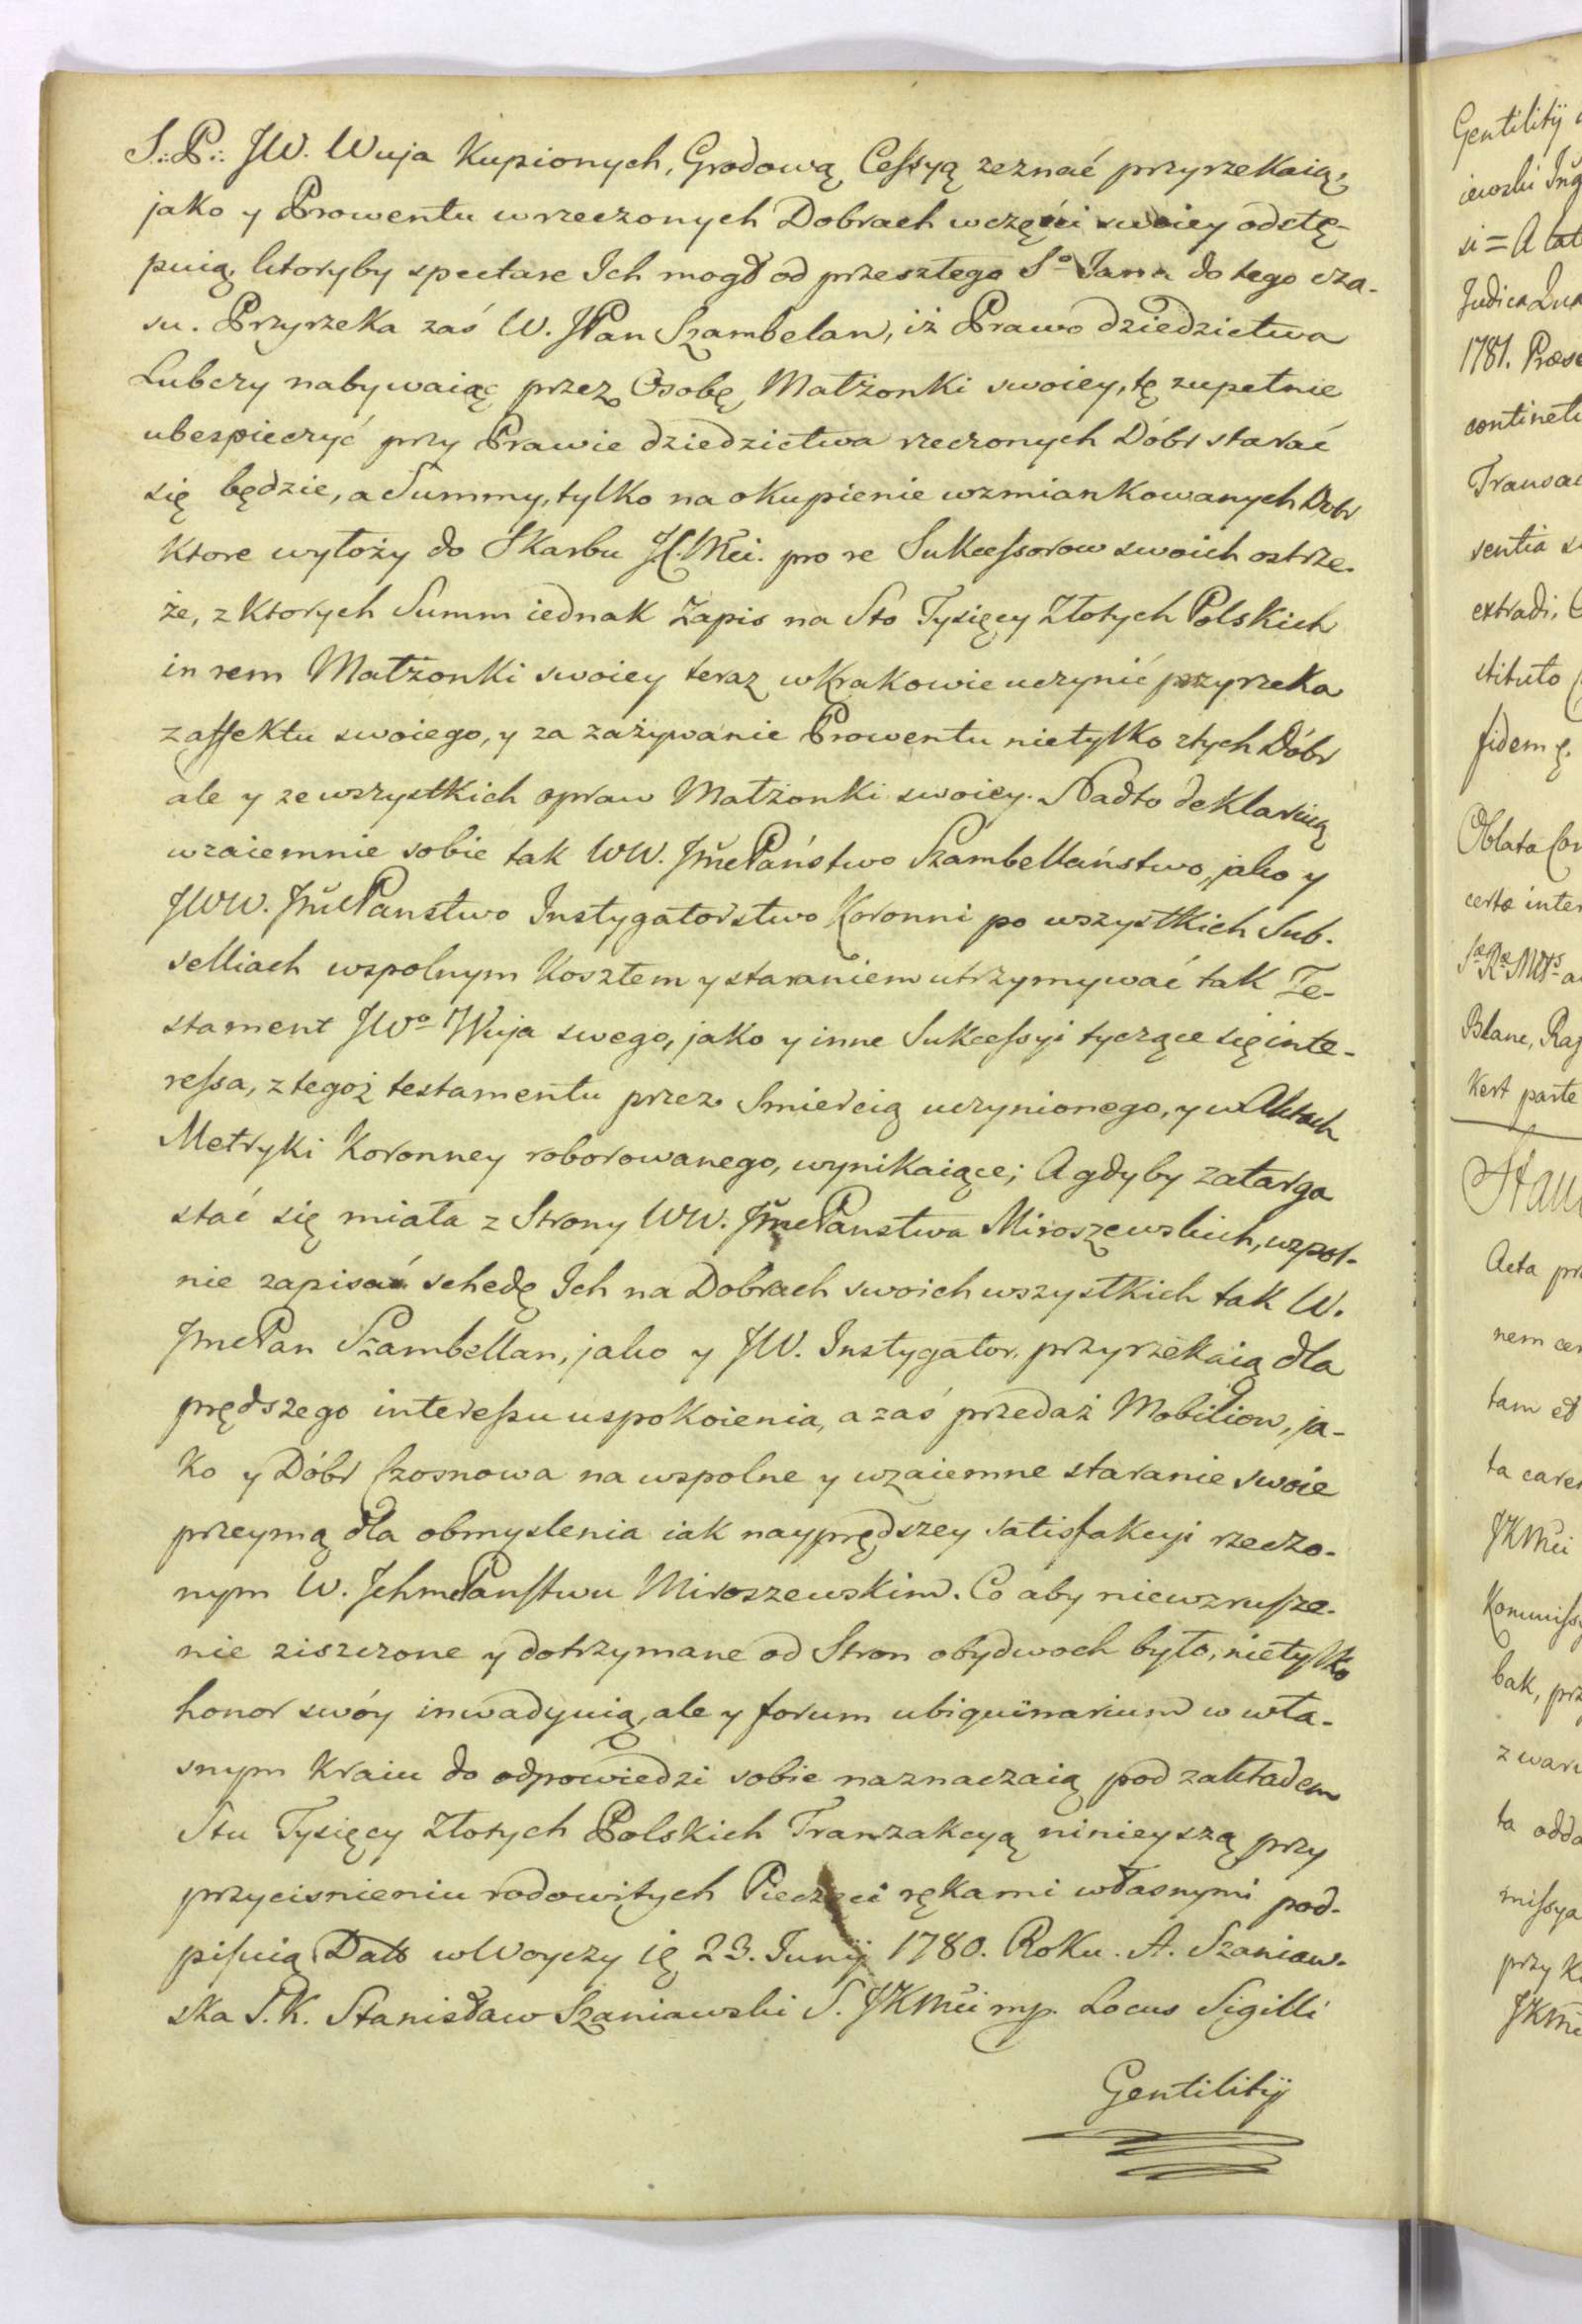 S.: P.: JW. Wuja Kupionych, Grodową Cessyą zeznać przyrzekaią,
jako y Prowentu w rzeczonych Dobrach w częsci swoiey odstę-
puią, ktoryby spectare Ich mogł od przeszłego S⁰ Jana do tego cza-
su. Przyrzeka zaś W. JPan Szambelan, iż Prawo dziedzictwa
Lubczy nabywaiąc przez Osobę Małżonki swoiey, tę zupełnie
ubezpieczyć przy Prawie dziedzictwa rzeczonych Dóbr starać
się będzie, a Summy, tylko na okupienie wzmiankowanych Dobr
ktore wyłoży do Skarbu JK.Mci. pro re Sukcessorow swoich ostrze-
że, z ktorych Summ iednak Zapis na Sto Tysięcy Złotych Polskich
in rem Małżonki swoiey teraz w Krakowie uczynić przyrzeka
z affektu swoiego, y za zażywanie Prowentu nietylko z tych Dóbr
ale y ze wszystkich spraw Małżonki swoiey. Nadto deklaruią
wzaiemnie sobie tak WW. JmcPaństwo Szambellaństwo, jako y
JWW. JmcPanstwo Instygatorstwo Koronni po wszystkich Sub-
selliach wspolnym Kosztem y staraniem utrzymywać tak Te-
stament JW⁰ Wuja swego, jako y inne Sukcessyi tyczące się inte-
ressa, z tegoż testamentu przez Smiercią uczynionego, y w Aktach
Metryki Koronney roborowanego, wynikaiące; A gdyby zatarga
stać się miała z Strony WW. JmcPanstwa Miroszewskich, wspol-
nie zapisać schedę Ich na Dobrach swoich wszystkich tak W.
JmcPan Szambellan, jako y JW. Instygator, przyrzekaią dla
prędszego interessu uspokoienia, a zaś przedaż Mobiliow, ja-
ko y Dóbr Czosnowa na wspolne y wzaiemne staranie swoie
przeymą dla obmyslenia iak nayprędszey satisfakcyi rzeczo-
nym W. JchmcPanstwu Miroszewskim. Co aby niewzrusze-
nie ziszczone y dotrzymane od Stron obydwoch było, nietylko
honor swóy inwadyuią, ale y forum ubiquinarium w wła-
snym Kraiu do odpowiedzi sobie naznaczaią pod zakładem
Stu Tysięcy Złotych Polskich Tranzakcyą ninieyszą przy
przycisnieniu rodowitych Pieczęci rękami własnymi pod-
pisuią Datt w Woyczy ię 23. Junij 1780. Roku. A. Szaniaw-
ska S.K. Stanisław Szaniawski S. JKMci mp. Locus Sigilli
Gentilitij
Gentilitij
iewski
si = A
Judica
1781.
continet
Transac
sentia
extradi,
stituto
fidem
Oblata
certæ inter
Kert parte
Acta
nem
tam et
ta
JKMci
bak,
ta
przy